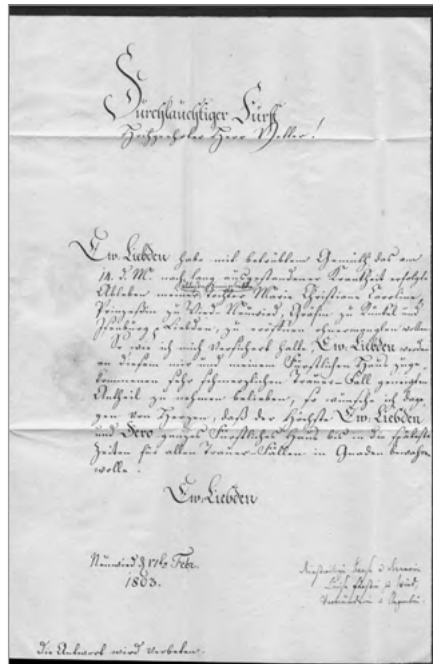 Durchläuchtiger Fürst
Hochgeehrter Herr Vetter!
Ew. Liebden habe mit betrübtem Gemüth das am
14. d. M. nach lang ausgestandener Krankheit erfolgte
Ableben meiner Tochter Marie Christiane Caroline,
Prinzeßin zu Wied-Neuwied, Gräfin zu
Isenburg, Liebden, zu eröffnen ohnermangeln wollen.
So wie ich mich versichert halte, Ew. Liebden werden
an diesem mir und meinem Fürstlichen Haus zuge-
kommenen sehr schmerzlichen Trauer-Fall geneigten
Antheil zu nehmen belieben, so wünsche ich dage-
gen von Herzen, daß der Höchste Ew. Liebden
und Dero ganzes Fürstliches Haus bis in die späteste
Zeiten für allen Trauer-Fällen in Gnaden bewahren
wolle.
Ew. Liebden
Neuwied Febr.
1803.
Die Antwort wird verbeten.